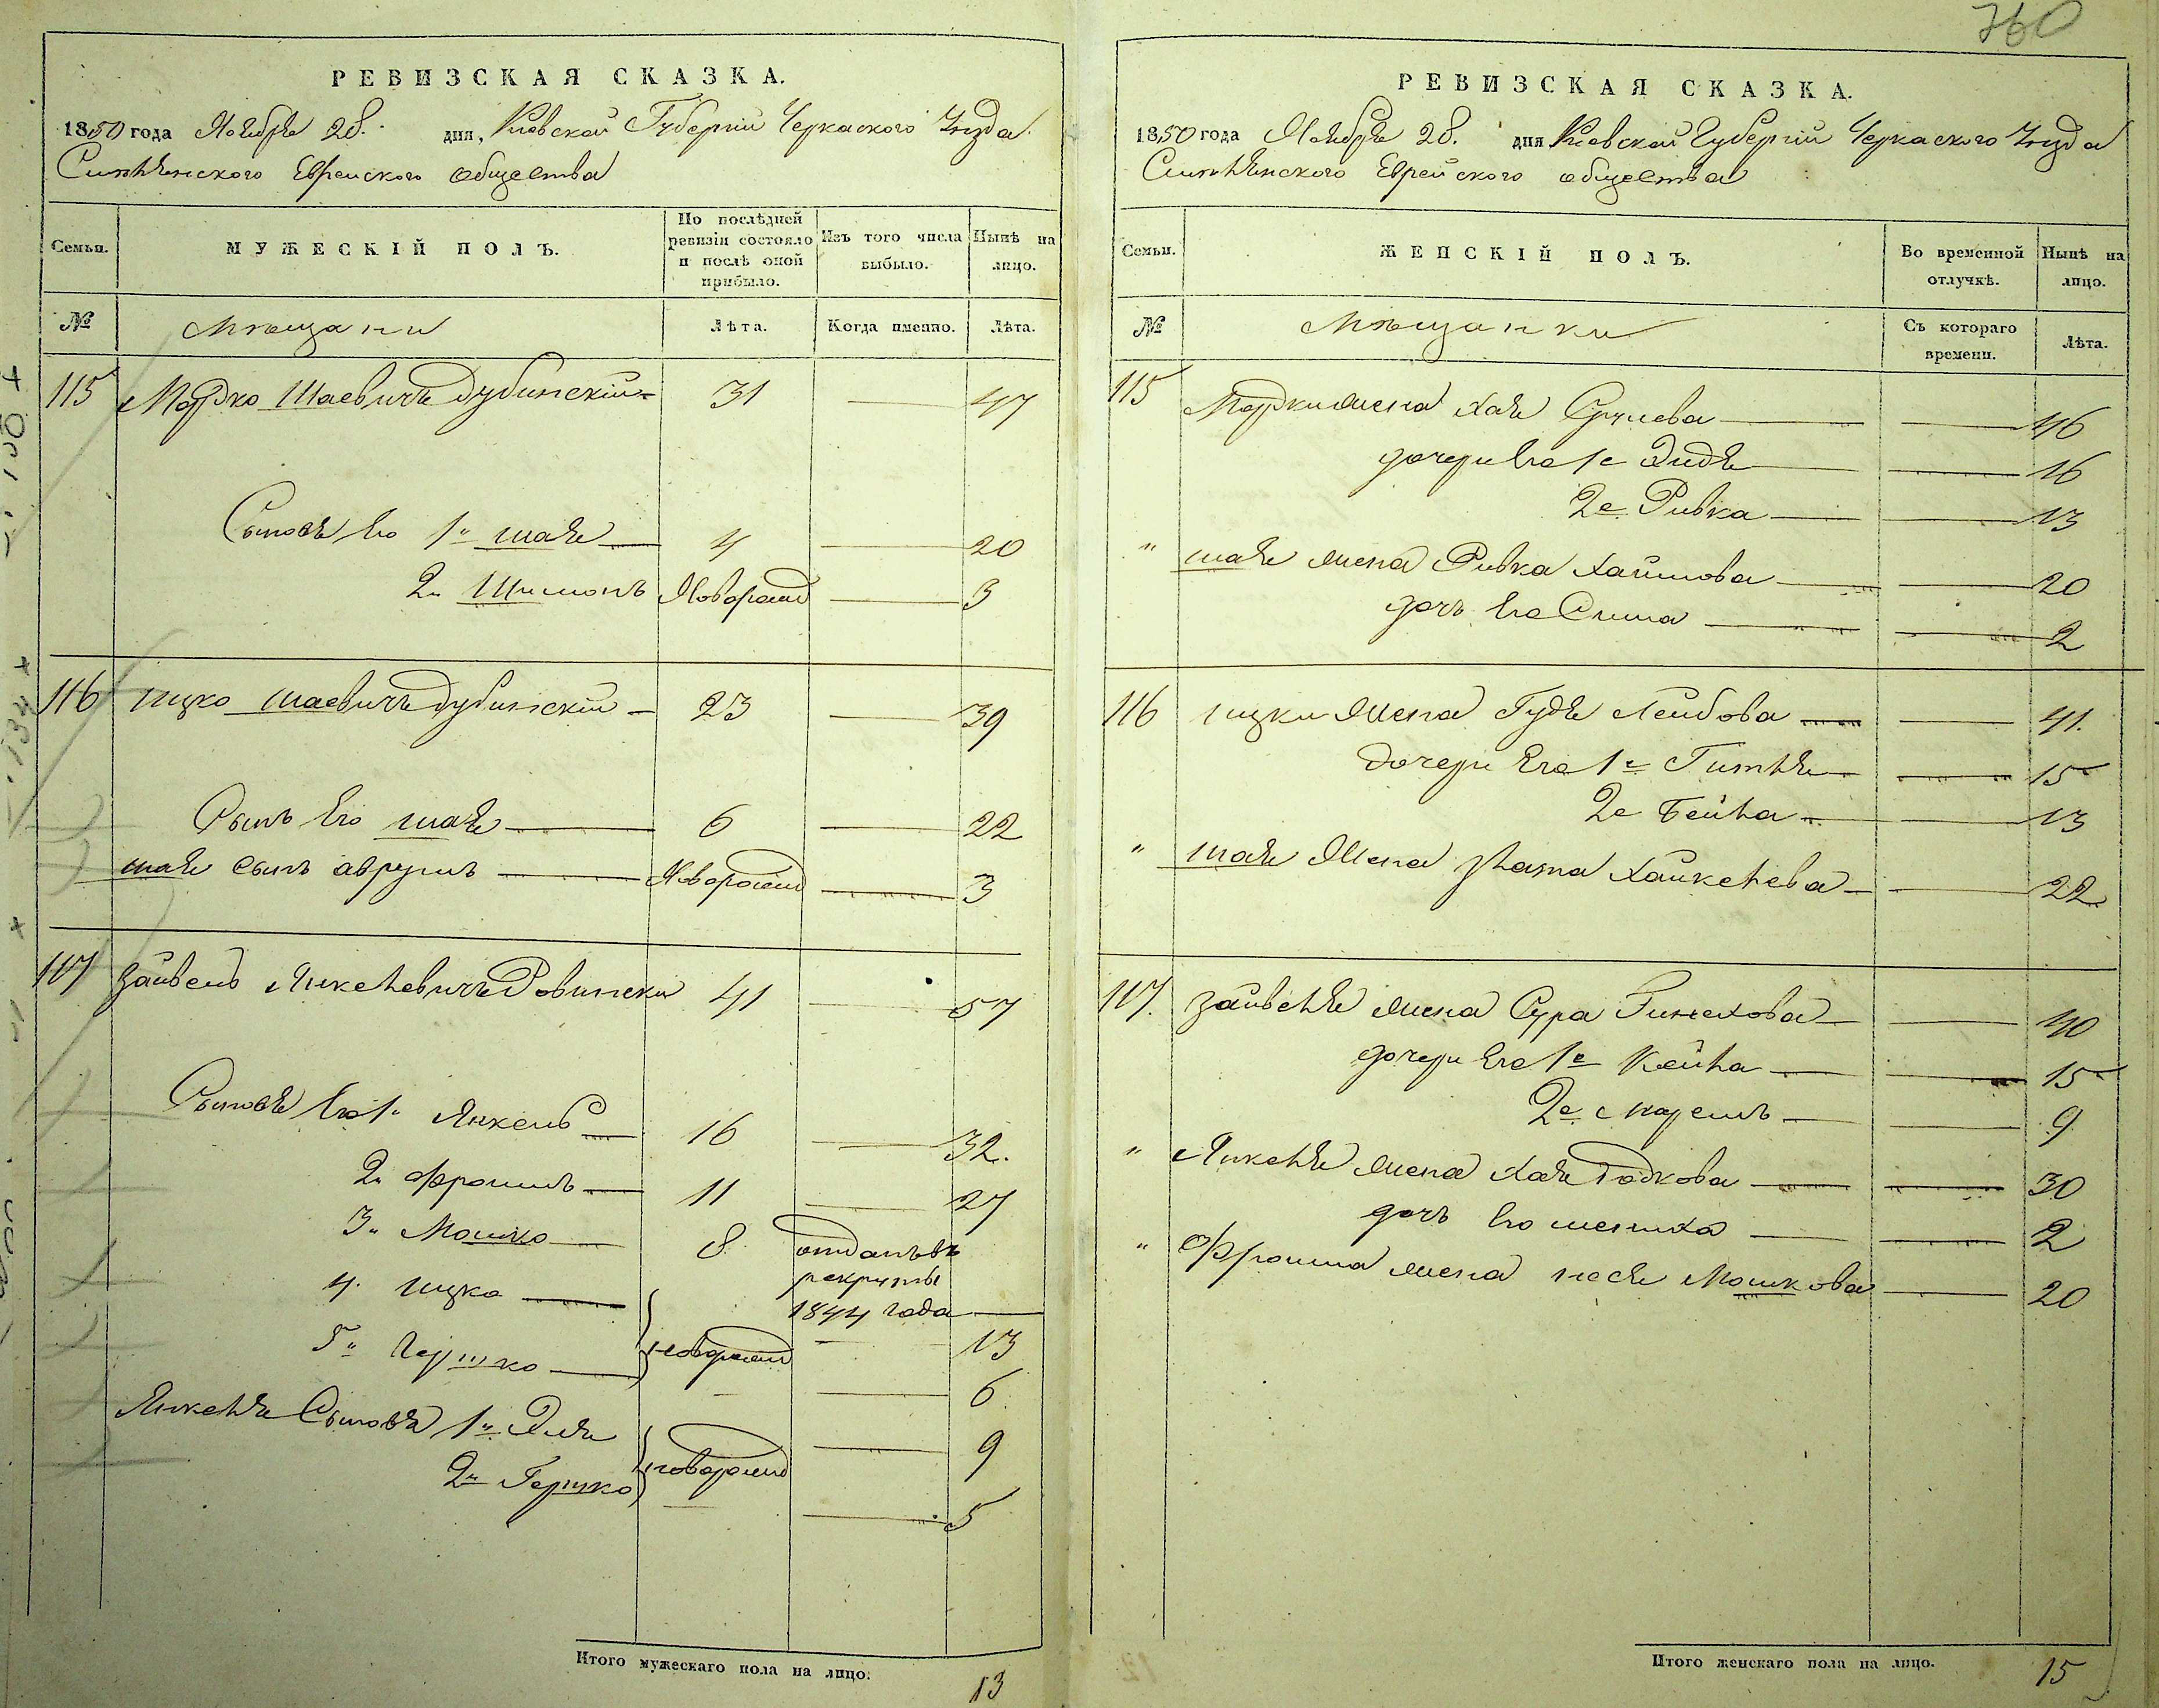 760
РЕВИЗСКАЯ СКАЗКА.
1850 года Ноября 28. дня, Киевской Губернии Черкаского Уезда
Еврейского общества
Семьи.
МУЖЕСКІЙ ПОЛЪ.
По послѣдней ревизіи состояло и послѣ оной прибыло.
Изъ того числа выбыло.
Нынѣ на лицо.
№
Мещани
Лѣта.
Когда именно.
Лѣта.
115 Марко Шаевичъ Дубинскій 31 — 47
Сыновя его 1й Шая — 4 — 20
2й Шимонъ Новорожд — 3
116 ицко Шаевичъ Дубинскій — 23 — 39
Сынъ его шая — 6 — 22
шая сынъ аврумъ — Новорожд — 3
117 Зайвель Янкелевичъ Ровински 41 — 57
Сыновя его 1й Янкель — 16 — 32.
2й Фроимъ — 11 — 27
3й Мошко — 8 отданъ въ рекруты 1844 года —
4. ицко — новорожд — 13
5й Гершко — — 6
Янкеля Сыновя 1й Эля новорожд — 9
2й Гершко — 5
Итого мужескаго пола на лицо. 13
РЕВИЗСКАЯ СКАЗКА.
1850 года Ноября 28. дня Киевской Губернии Черкаского Уезда
Еврейского общества
Семьи.
ЖЕНСКІЙ ПОЛЪ.
Во временной отлучкѣ.
Нынѣ на лицо.
№
Мещанки
Съ котораго времени.
Лѣта.
115 Марки жена Хая Срулева — — 46
дочери его 1е Эидя — — 16
2е Ривка — — 13
" шая жена Ривка Хаимова — — 20
дочъ его Сима — — 2
116 ицки жена Гудя Лейбова — — 41.
дочери его 1е Гитля — — 15
2е Бейла — — 13
" шая Жена Злата Хайкелева — — 22
117. Зайвеля жена Сура Пинехова — — 40
дочери его 1е Кейла — — 15
2е — — 9
" Янкеля жена Хая Годкова — — 30
дочъ его — — 2
" Фроима жена песя Мошкова — 20
Итого женскаго пола на лицо. 15